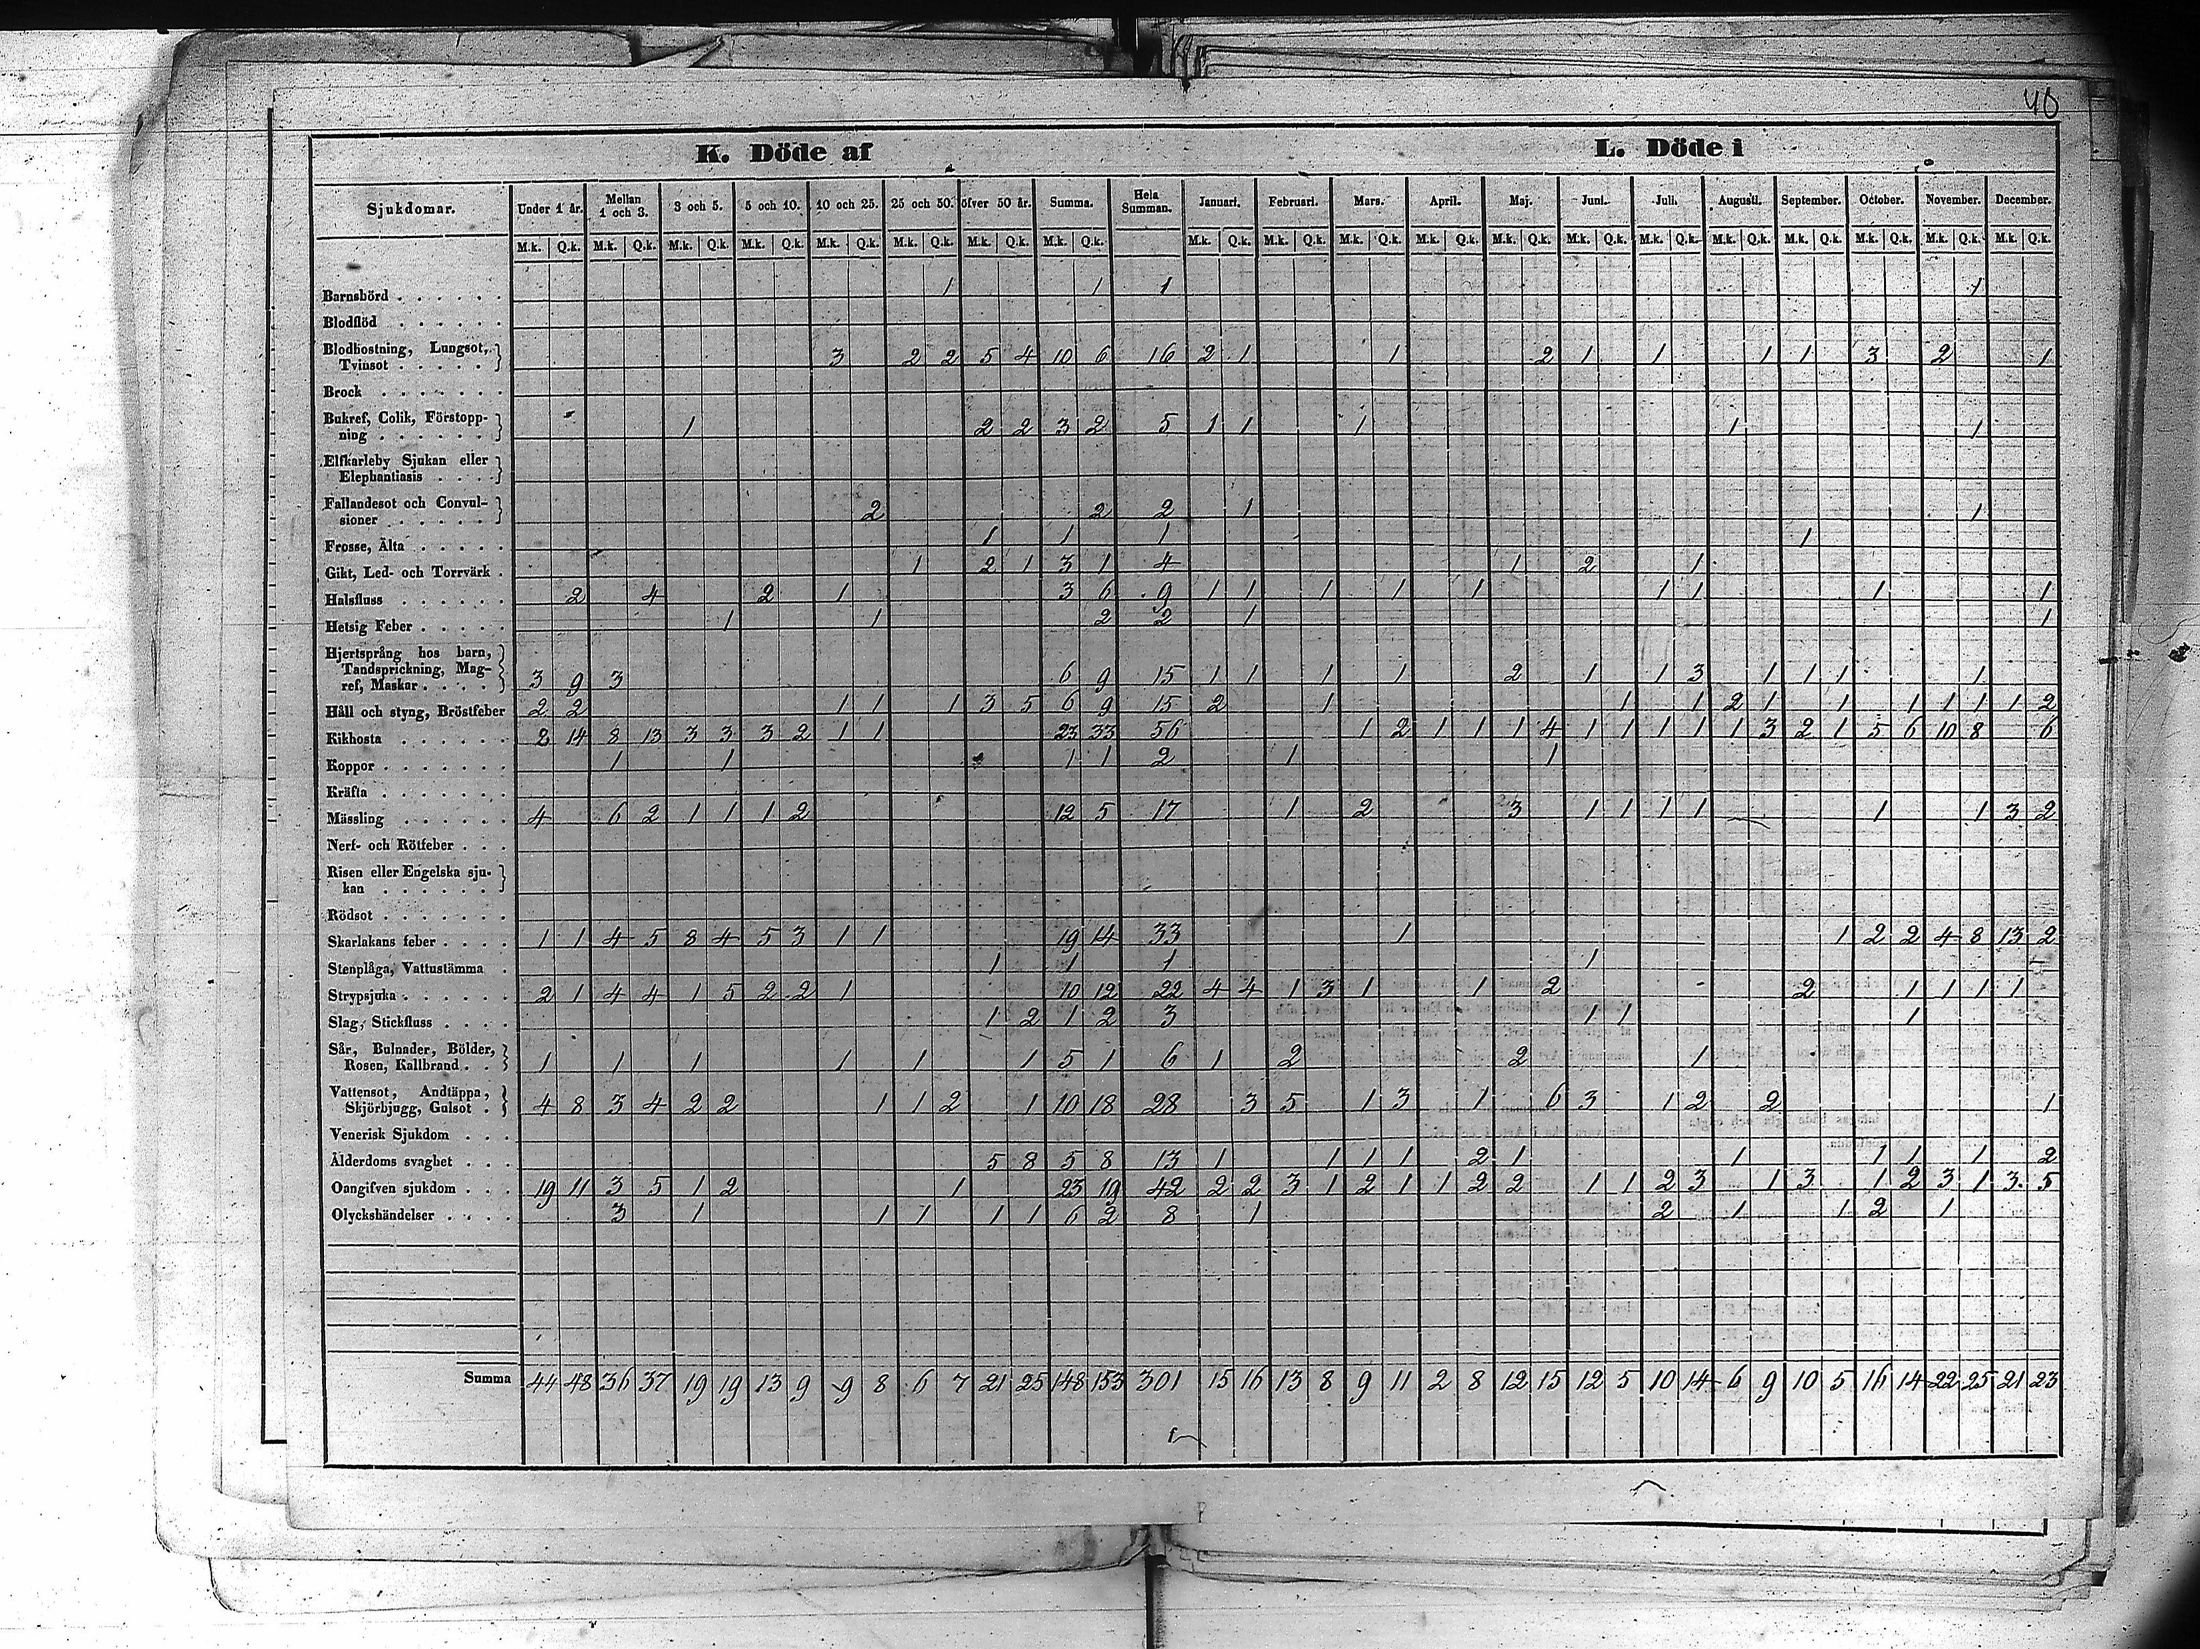 40
K. Döde af L. Döde i
Sjukdomar. Under 1 år. Mellan 1 och 3. 3 och 5. 5 och 10. 10 och 25. 25 och 50. öfver 50 år. Summa. Hela Summan. Januari. Februari. Mars. April. Maj. Juni. Juli. Augusti. September. October. November. December.
M.k. Q.k. M.k. Q.k. M.k. Q.k. M.k. Q.k. M.k. Q.k. M.k. Q.k. M.k. Q.k. M.k. Q.k. M.k. Q.k. M.k. Q.k. M.k. Q.k. M.k. Q.k. M.k. Q.k. M.k. Q.k. M.k. Q.k. M.k. Q.k. M.k. Q.k. M.k. Q.k. M.k. Q.k. M.k. Q.k.
Barnsbörd 1 1 1 1
Blodflöd
Blodhostning, Lungsot,
Tvinsot 3 2 2 5 4 10 6 16 2 1 1 2 1 1 1 1 3 2 1
Brock
Bukref, Colik, Förstopp-
ning 1 2 2 3 2 5 1 1 1 1 1
Elfkarleby Sjukan eller
Elephantiasis
Fallandesot och Convul-
sioner 2 2 2 1 1
Frosse, Älta 1 1 1 1
Gikt, Led- och Torrvärk 1 2 1 3 1 4 1 2 1
Halsfluss 2 4 2 1 3 6 9 1 1 1 1 1 1 1 1 1
Hetsig Feber 1 1 2 2 1 1
Hjertsprång hos barn,
Tandsprickning, Mag-
ref, Maskar 3 9 3 6 9 15 1 1 1 1 2 1 1 3 1 1 1 1
Håll och styng, Bröstfeber 2 2 1 1 1 3 5 6 9 15 2 1 1 1 2 1 1 1 1 1 1 2
Kikhosta 2 14 8 13 3 3 3 2 1 1 23 33 56 1 2 1 1 1 4 1 1 1 1 1 3 2 1 5 6 10 8 6
Koppor 1 1 1 1 2 1 1
Kräfta
Mässling 4 6 2 1 1 1 2 12 5 17 1 2 3 1 1 1 1 1 1 3 2
Nerf- och Rötfeber
Risen eller Engelska sju-
kan
Rödsot
Skarlakans feber 1 1 4 5 8 4 5 3 1 1 19 14 33 1 1 2 2 4 8 13 2
Stenplåga, Vattustämma 1 1 1 1
Strypsjuka 2 1 4 4 1 5 2 2 1 10 12 22 4 4 1 3 1 1 2 2 1 1 1 1
Slag, Stickfluss 1 2 1 2 3 1 1 1
Sår, Bulnader, Bölder,
Rosen, Kallbrand 1 1 1 1 1 1 5 1 6 1 2 2 1
Vattensot, Andtäppa,
Skjörbjugg, Gulsot 4 8 3 4 2 2 1 1 2 1 10 18 28 3 5 1 3 1 6 3 1 2 2 1
Venerisk Sjukdom
Ålderdoms svaghet 5 8 5 8 13 1 1 1 1 2 1 1 1 1 1 2
Oangifven sjukdom 19 11 3 5 1 2 1 23 19 42 2 2 3 1 2 1 1 2 2 1 1 2 3 1 3 1 2 3 1 3 5
Olyckshändelser 3 1 1 1 1 1 6 2 8 1 2 1 1 2 1
Summa 44 48 36 37 19 19 13 9 9 8 6 7 21 25 148 153 301 15 16 13 8 9 11 2 8 12 15 12 5 10 14 6 9 10 5 16 14 22 25 21 23